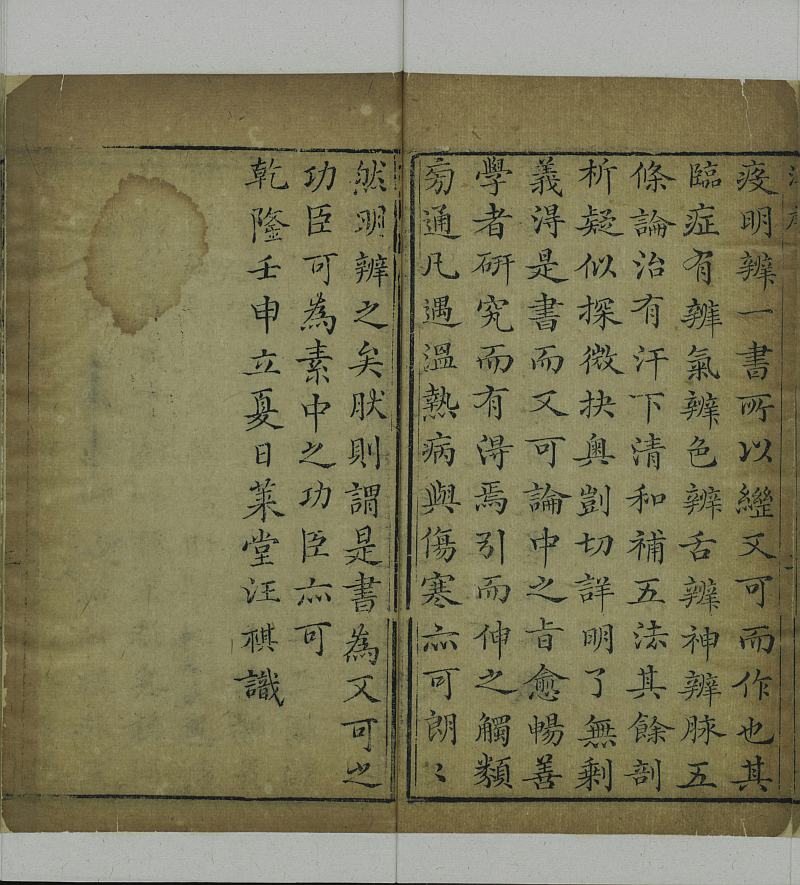 疫明辨一書所以繼又可而作也其
臨症有辨氣辨色辨舌辨神辨脉五
條論治有汗下清和補五法其餘剖
析疑似探微抉奧剴切詳明了無剩
義得是書而又可論中之旨愈暢善
學者研究而有得焉引而伸之觸類
旁通凡遇溫熱病與傷寒亦可朗〻
然明辨之矣肰則謂是書為又可之
功臣可為素中之功臣亦可
乾隆壬申立夏日萊堂汪祺識